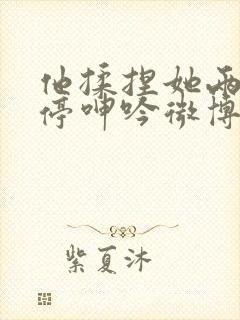 他揉捏她两
停呻吟微博
紫夏沐